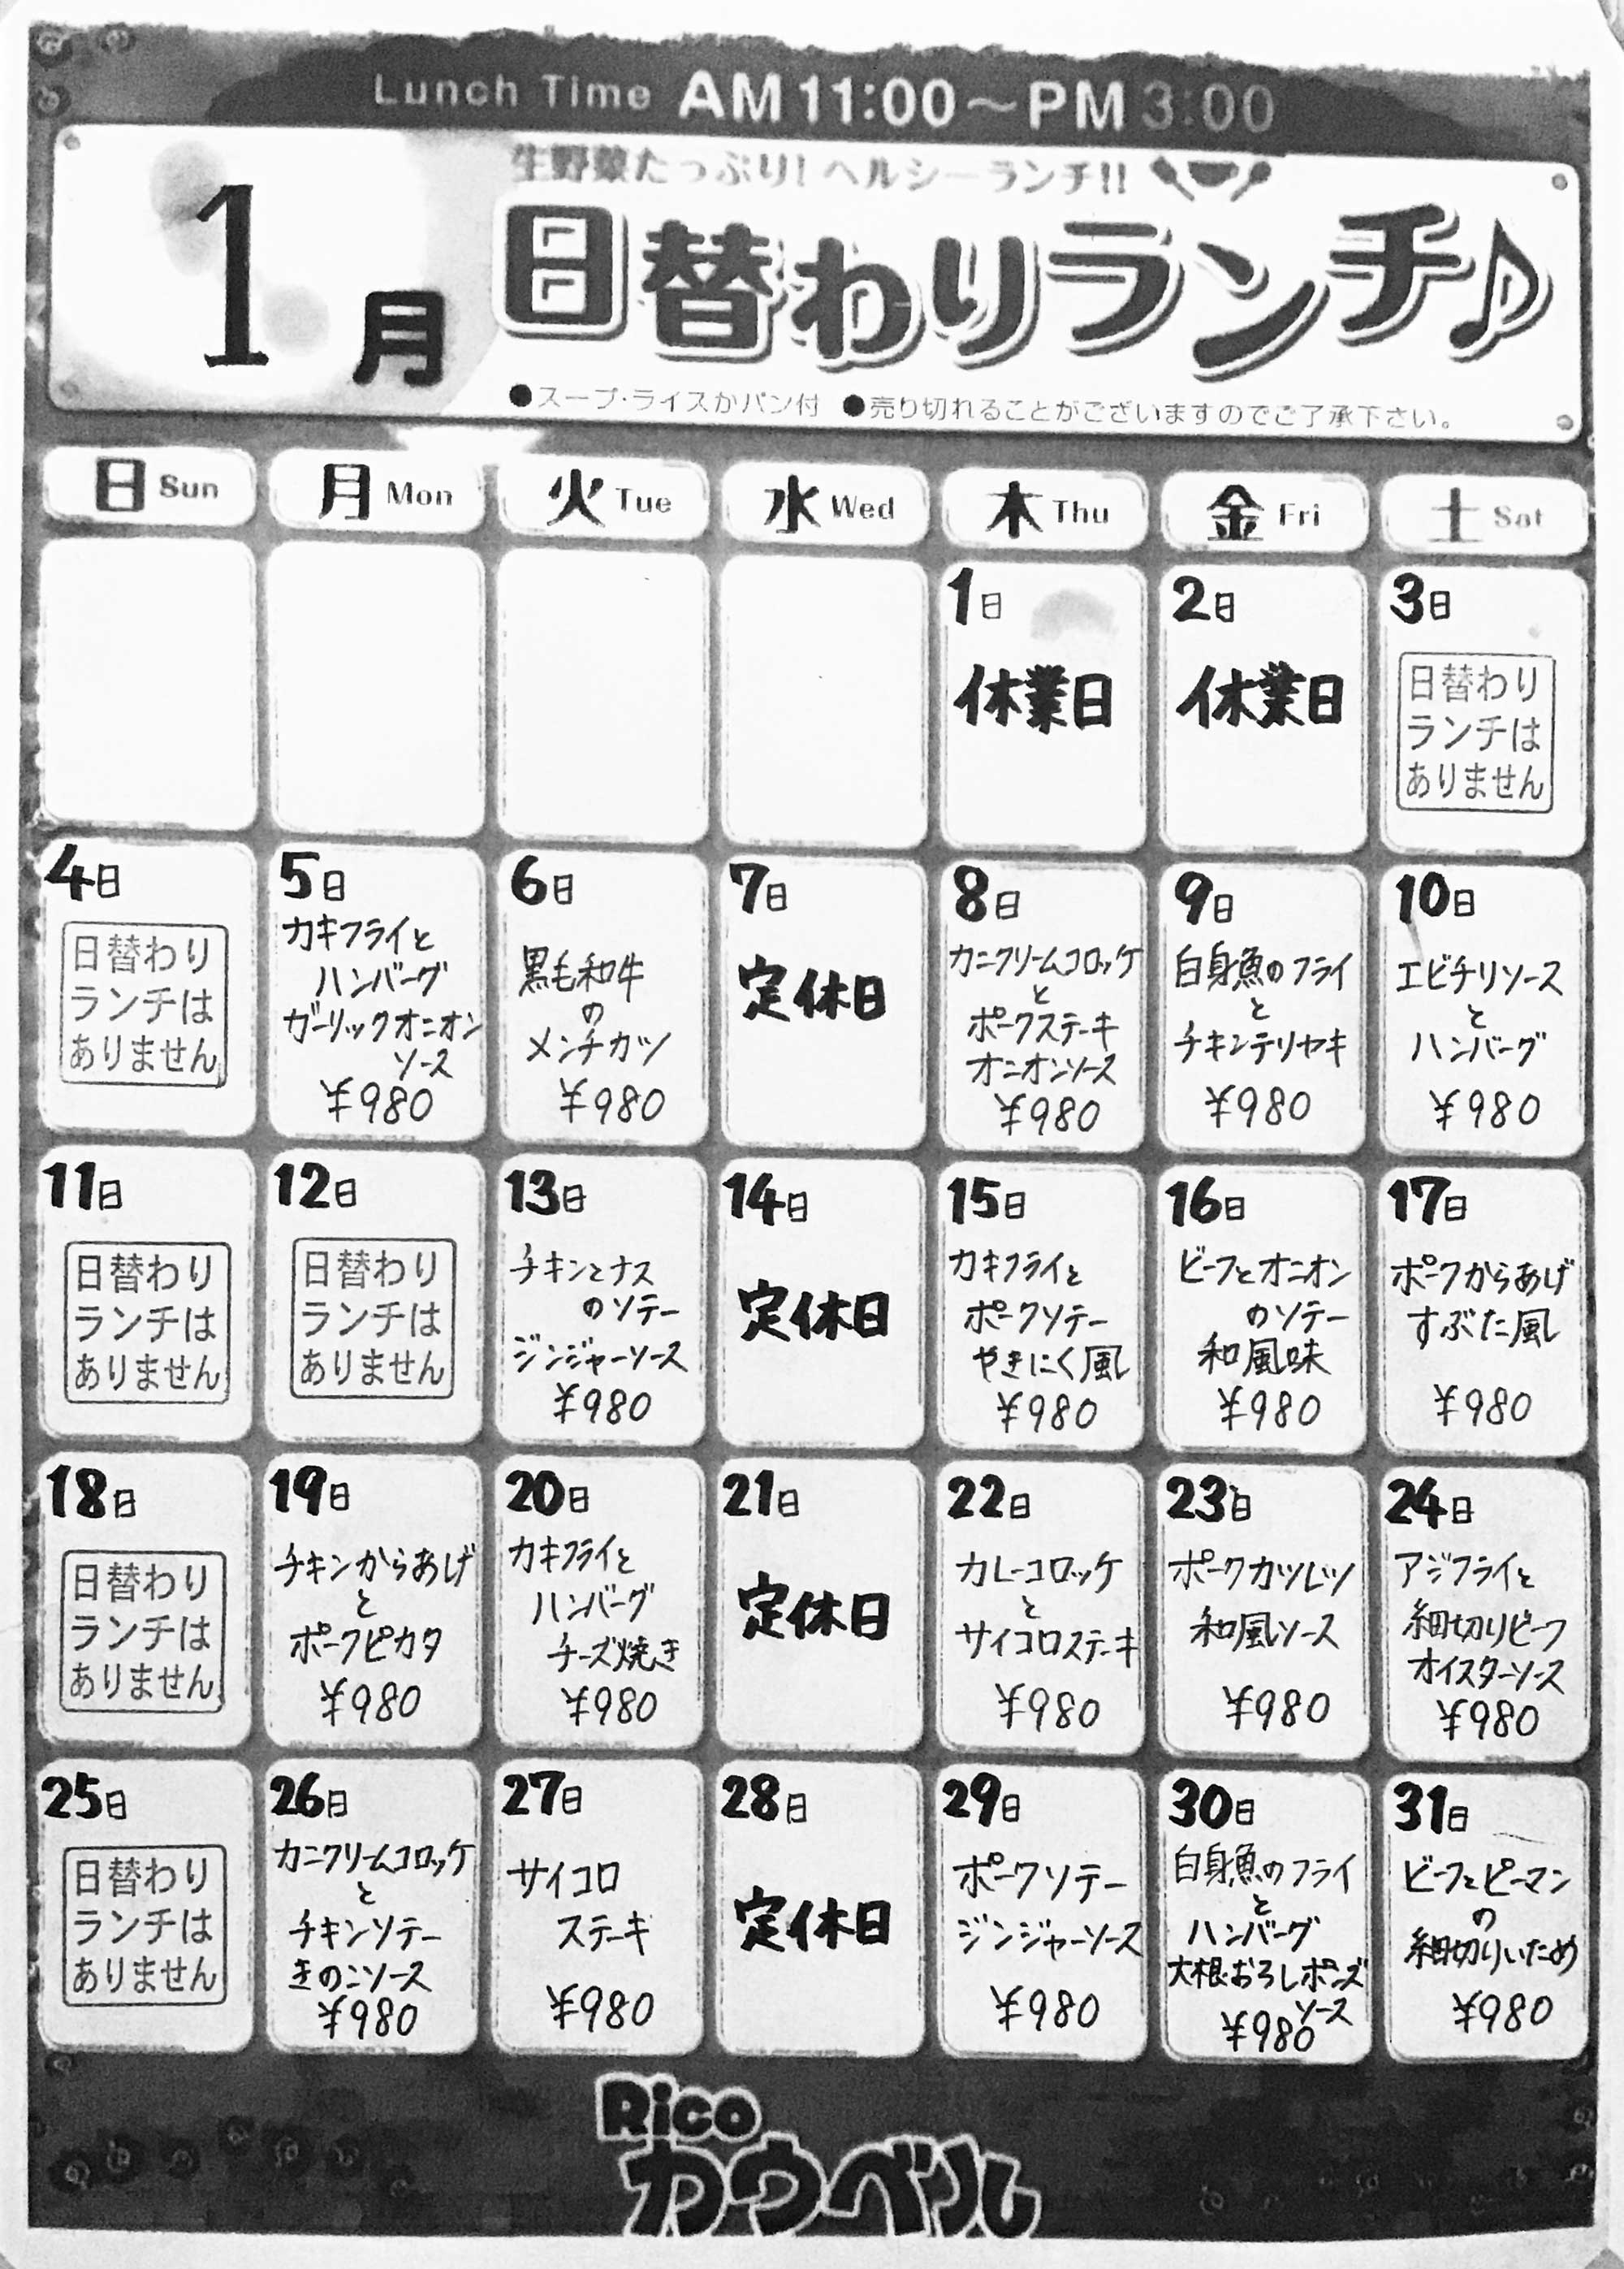 Lunch Time AM 11:00～PM 3:00
生野菜たっぷり！ヘルシーランチ!!
1月
日替わりランチ♪
●スープ・ライスかパン付 ●売り切れることがございますのでご了承下さい。
日 Sun 月 Mon 火 Tue 水 Wed 木 Thu 金 Fri 土 Sat
1日
休業日
2日
休業日
3日
日替わり
ランチは
ありません
4日
日替わり
ランチは
ありません
5日
カキフライと
ハンバーグ
ガーリックオニオン
ソース
¥980
6日
黒毛和牛
の
メンチカツ
¥980
7日
定休日
8日
カニクリームコロッケ
と
ポークステーキ
オニオンソース
¥980
9日
白身魚のフライ
と
チキンテリヤキ
¥980
10日
エビチリソース
と
ハンバーグ
¥980
11日
日替わり
ランチは
ありません
12日
日替わり
ランチは
ありません
13日
チキンとナス
のソテー
ジンジャーソース
¥980
14日
定休日
15日
カキフライと
ポークソテー
やきにく風
¥980
16日
ビーフとオニオン
のソテー
和風味
¥980
17日
ポークからあげ
すぶた風
¥980
18日
日替わり
ランチは
ありません
19日
チキンからあげ
と
ポークピカタ
¥980
20日
カキフライと
ハンバーグ
チーズ焼き
¥980
21日
定休日
22日
カレーコロッケ
と
サイコロステーキ
¥980
23日
ポークカツレツ
和風ソース
¥980
24日
アジフライと
細切りビーフ
オイスターソース
¥980
25日
日替わり
ランチは
ありません
26日
カニクリームコロッケ
と
チキンソテー
きのこソース
¥980
27日
サイコロ
ステーキ
¥980
28日
定休日
29日
ポークソテー
ジンジャーソース
¥980
30日
白身魚のフライ
と
ハンバーグ
大根おろしポンズ
ソース
¥980
31日
ビーフとピーマン
の
細切りいため
¥980
Rico
カウベル